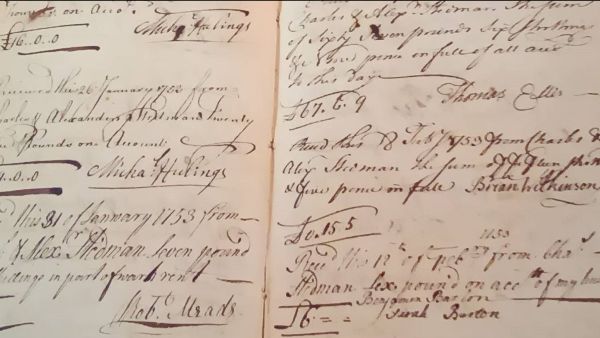 pounds on Acco.t
£16..0..0
Micha: Hulings
Received this 26 January 1753 from
Charles & Alexander Stedman Twenty
Pounds on Account
0..0
Micha: Hulings
this 31 of January 1753 from
& Alex.r Stedman Seven pound
in part of
Rob.t Meade
Charles & Alex.r Stedman the Sum
of Sixty Seven pounds Six Shillings
& Nine pence in full of all acc
to this day
£67.6.9
Thomas Ellis
this 8 Feb.y 1753 from Charles &
Alex Stedman the sum of fifteen
& five pence in full Brian Wilkinson
£0.15.5
1753
Rec.d this 12.th of Feb.y from Cha.s
Stedman Six pound on acc.tt of my
Benjamin Barton
£6 = =
Sarah Barton